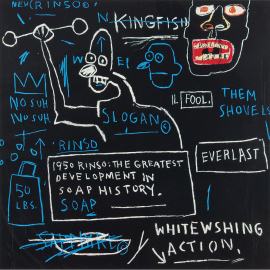 NEW (RINSO©)
N
KINGFISH
W E
NO SUH
NO SUH
SLOGAN ©
IL FOOL.
THEM
SHOVELS
RINSO
1950 RINSO: THE GREATEST
DEVELOPMENT IN
SOAP HISTORY.
SOAP
EVERLAST
50
LBS.
WHITEWSHING
ACTION.